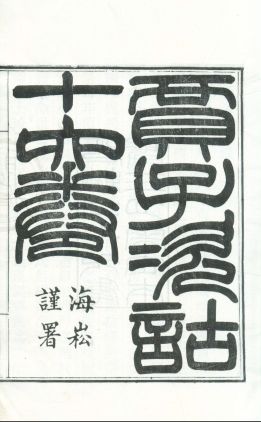 賈子次詁
十六卷
海崧
謹署